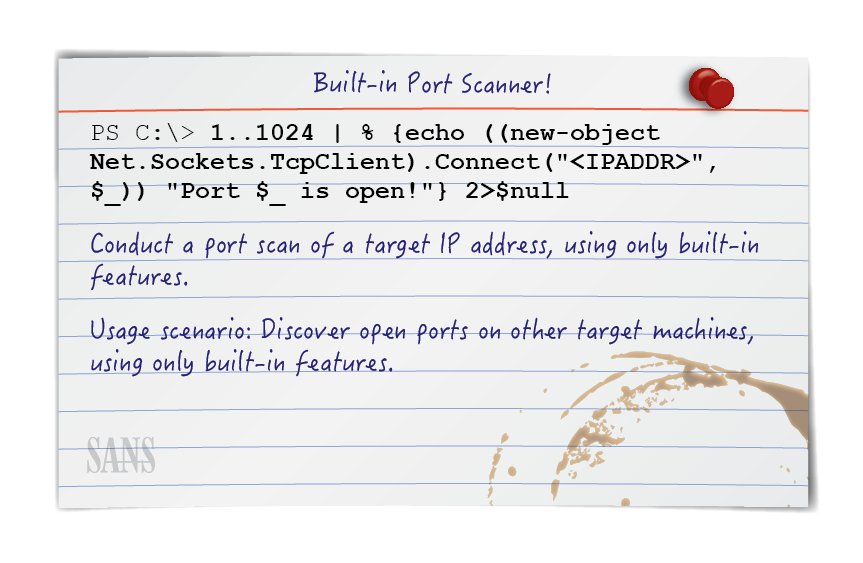 Built-in Port Scanner!
PS C:\> 1..1024 | % {echo ((new-object
Net.Sockets.TcpClient).Connect("<IPADDR>",
$_)) "Port $_ is open!"} 2>$null
Conduct a port scan of a target IP address, using only built-in
features.
Usage scenario: Discover open ports on other target machines,
using only built-in features.
SANS